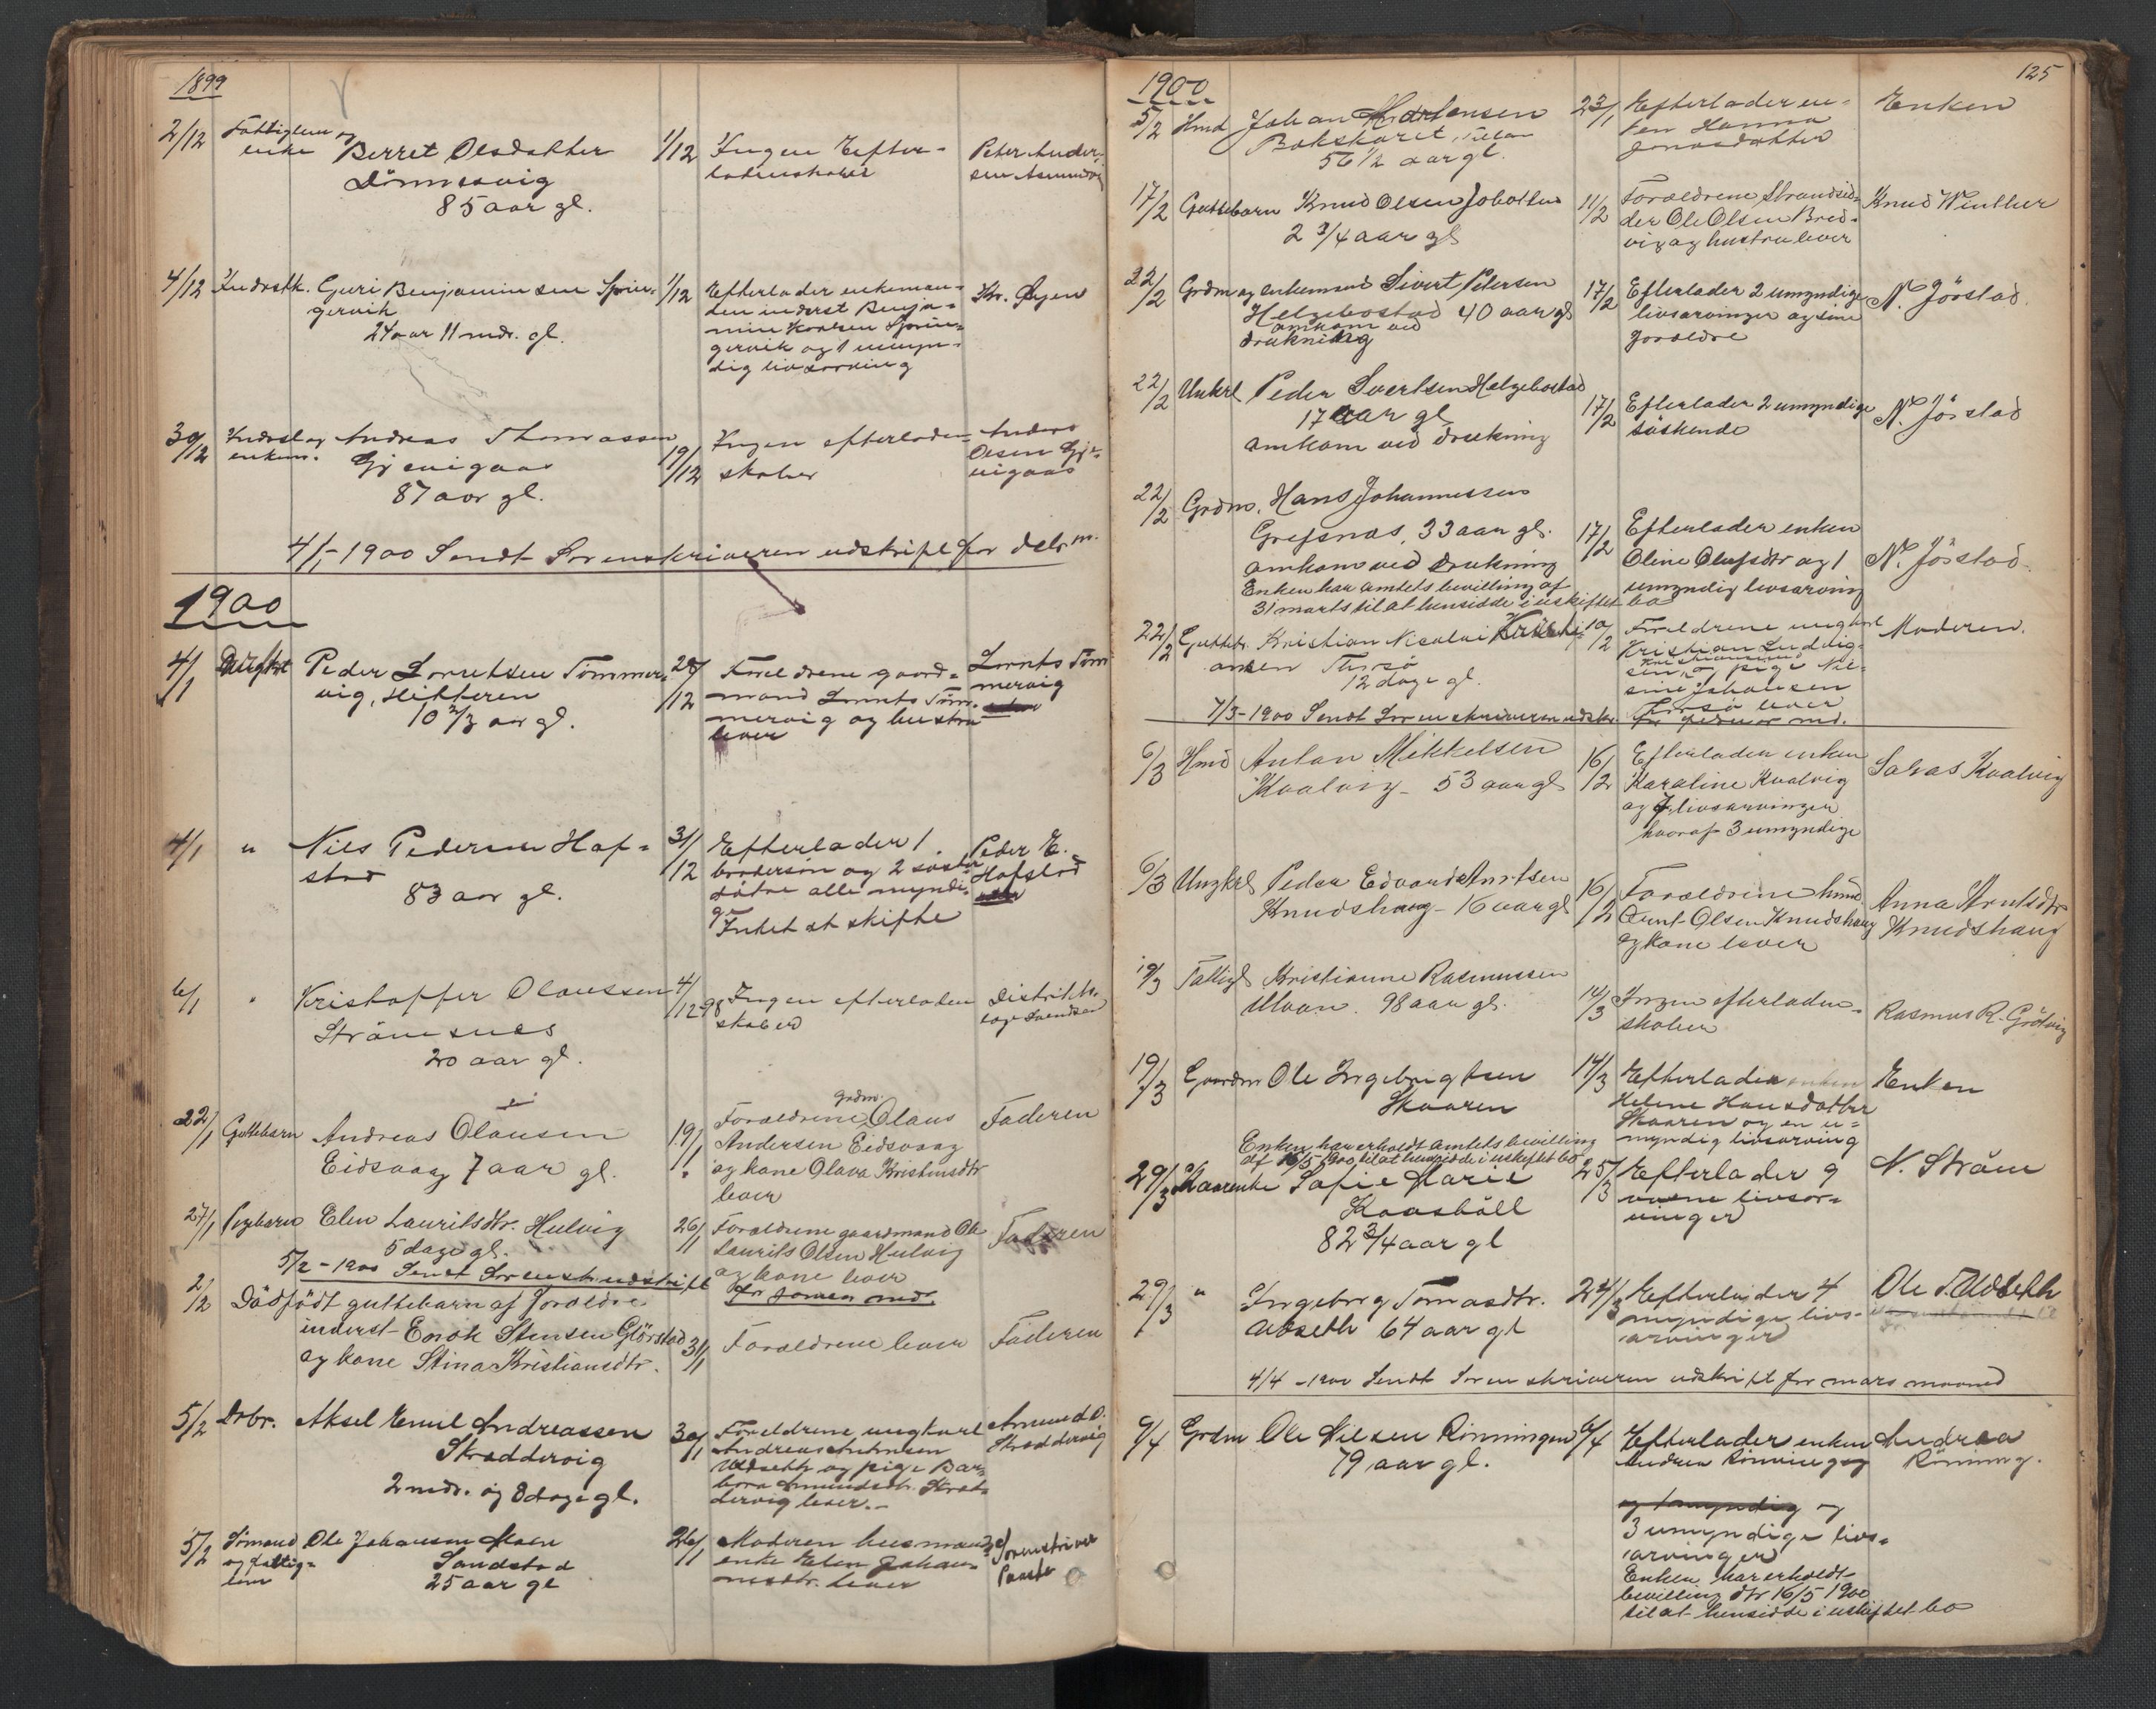 1899
2/12 Fattiglem og
enke Berret Olsdatter 1/12 Ingen Efter-
Dömmesvig ladenskaber
85 aar gl.
Peter Ander-
sen
4/12 Inderstk. Guri Benjaminsen Sprin-
gervik
24 aar 11 mdr. gl.
1/12 Efterlader enkeman-
den inderst Benja-
min Sprin-
gervik og 1 umyn-
dig livsarving
Kr. Öyen
30/12 Inderst og Andreas Thomassen
enkem. Gjevigaas
87 aar gl.
19/12 Ingen efterladen-
skaber
Anders
Olsen Gje-
vigaas
4/1-1900 Sendt Sorenskriveren udskrift for debr m.
1900
4/1 Peder Lorntsen Tømmer-
vig, Hitteren
10 2/3 aar gl.
28/12 Foreldrene gaard-
mand Lornts Tøm-
mervig og hustru
lever
Lornts Tøm
mervig
4/1 " Nils Pedersen Haf-
stad
83 aar gl.
31/12 Efterlader 1
brodersön og 2 söster
dötre alle myndi-
ge
Intet at skifte
Peder E.
Hafstad
6/1 " Kristoffer Olaussen
Strömsnes
20 aar gl.
4/12 98 Ingen efterladen
skaber
Distrikts-
læge Svendsen
22/1 Guttebarn Andreas Olausen
Eidsvaag 7 aar gl.
19/1 Forældrene grdm. Olaus
Andersen Eidsvaag
og kone Olava Kristensdtr
lever
Faderen
27/1 Pigebarn Elen Lauritsdtr. Hulvig
5 dage gl.
26/1 Forældrene gaardmand Ole
Laurits Olsen Hulvig
og kone lever
Faderen
5/2-1900 Sendt Sorenskr. udskrift
for januar md.
2/2 Dödfödt guttebarn af forældre
inderst Enok Stensen Glörstad
og kone Stina Kristiansdtr.
31/1 Forældrene lever
Faderen
5/2 Drbr. Aksel Emil Andreassen
Skraddervig
2 mdr. og 8 dage gl.
30/1 Foreldrene ungkarl
Andreas Antonsen
Uldseth og pige Bar-
bara Amundsdtr. Skrad-
dervig lever.-
Amund O.
Skraddervig
5/2 Sömand Ole Johansen Moen
og fattig- Sandstad
lem 25 aar gl
26/1 Moderen husmands-
enke Elen Johan-
nesdtr. lever
Sorenskriver
125
1900
5/2 Hmd Johan Martensen
Bakskaret,
56 1/2 aar gl.
23/1 Efterlader en-
ken Hanna
Jonasdatter
Enken
17/2 Guttebarn Knud Olsen
2 3/4 aar gl
11/2 Forældrene Strandsid-
der Ole Olsen Bred-
vig og hustru lever
Knud Winther
22/2 Grdm og enkemand Sivert Petersen
Helgebostad 40 aar gl
omkom ved
drukning
17/2 Efterlader 2 umyndige
livsarvinger og sine
forældre
N. Jörstad.
22/2 Unkrl Peder Sivertsen Helgebostad
17 aar gl
omkom ved drukning
17/2 Efterlader 2 umyndige
söskende
N. Jörstad
22/2 Grdm. Hans Johannessen
Grefsnæs, 33 aar gl.
omkom ved Drukning
Enken har amtets bevilling af
31 marts til at hensidde i uskiftet bo
17/2 Efterlader enken
Oline Olufsdtr og 1
umyndig livsarving
N. Jörstad
22/2 Guttebr. Kristian Nicolai Kristi-
ansen Thorsö
12 dage gl.
10/2 Foreldrene ungkarl
Kristian Ludvig-
sen Kristiansund og pige Nil-
sine Johansen
Thorsö lever
Moderen.
7/3-1900 Sendt Sorenskriveren udskr. for februar md.
6/3 Hmd Anton Mikkelsen
Kvalvig - 53 aar gl
16/2 Efterlader enken
Karaline Kvalvig
og 7 livsarvinger
hvoraf 3 umyndige
Kvalvig
6/3 Ungkrl Peder Edvard Arntsen
Knudshaug - 16 aar gl
16/2 Forældrene hmd
Arnt Olsen Knudshaug
og kone lever
Anna Arntsdtr
Knudshaug
19/3 Fattigl Kristianne Rasmussen
Ulvan. 98 aar gl.
14/3 Ingen efterladen-
skaber
Rasmus R. Grötvig
19/3 Gaardm Ole Ingebrigtsen
Skaaren
14/3 Efterlader enken
Helene Hansdatter
Skaaren og en u-
myndig livsarving
Enken
Enken har erholdt amtets bevilling
af 16/5 1900 til at hensidde i uskiftet bo
29/3 Kaarenke Sofie Marie
Kaasböll
82 3/4 aar gl
25/3 Efterlader 9
livsar-
vinger
N. Ström
29/3 " Ingeborg Tomasdtr.
Uldseth 64 aar gl
24/3 Efterlader 4
myndige livs-
arvinger
Ole T. Uldseth
4/4-1900 Sendt Sorenskriveren udskrift for mars maaned
9/4 Grdm Ole Nilsen Rönningen
79 aar gl.
6/4 Efterlader enken
Andrea Rönning
og 1 myndig og
3 umyndige livs-
arvinger
Enken har erholdt
bevilling dtr 16/5 1900
til at hensidde i uskiftet bo
Andrea
Rönning.